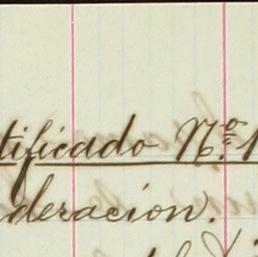 tificado No. 1
deracion.